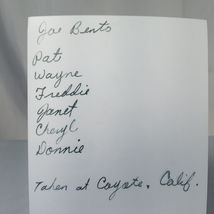 Joe Bents
Pat
Wayne
Freddie
Janet
Cheryl
Donnie
Taken at Coyote, Calif.